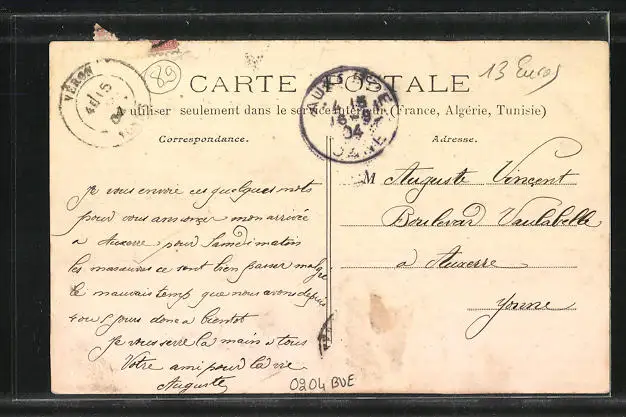 CARTE POSTALE
à utiliser seulement dans le service intérieur (France, Algérie, Tunisie)
Correspondance.
Adresse.
13 Euros
89
VERON
15
04
AUXERRE
YONNE
04
Je vous envoie ces quelques mots
pour vous annoncer mon arrivée
a Auxerre pour Samedi matin
les se sont bien passer malgré
le mauvais temp que nous avons depuis
4 ou 5 jours donc a bientot
Je vous serre la main a tous
Votre ami pour la vie
Auguste
M Auguste Vincent
Boulevar Vaulabelle
a Auxerre
Yonne
0204 BUE